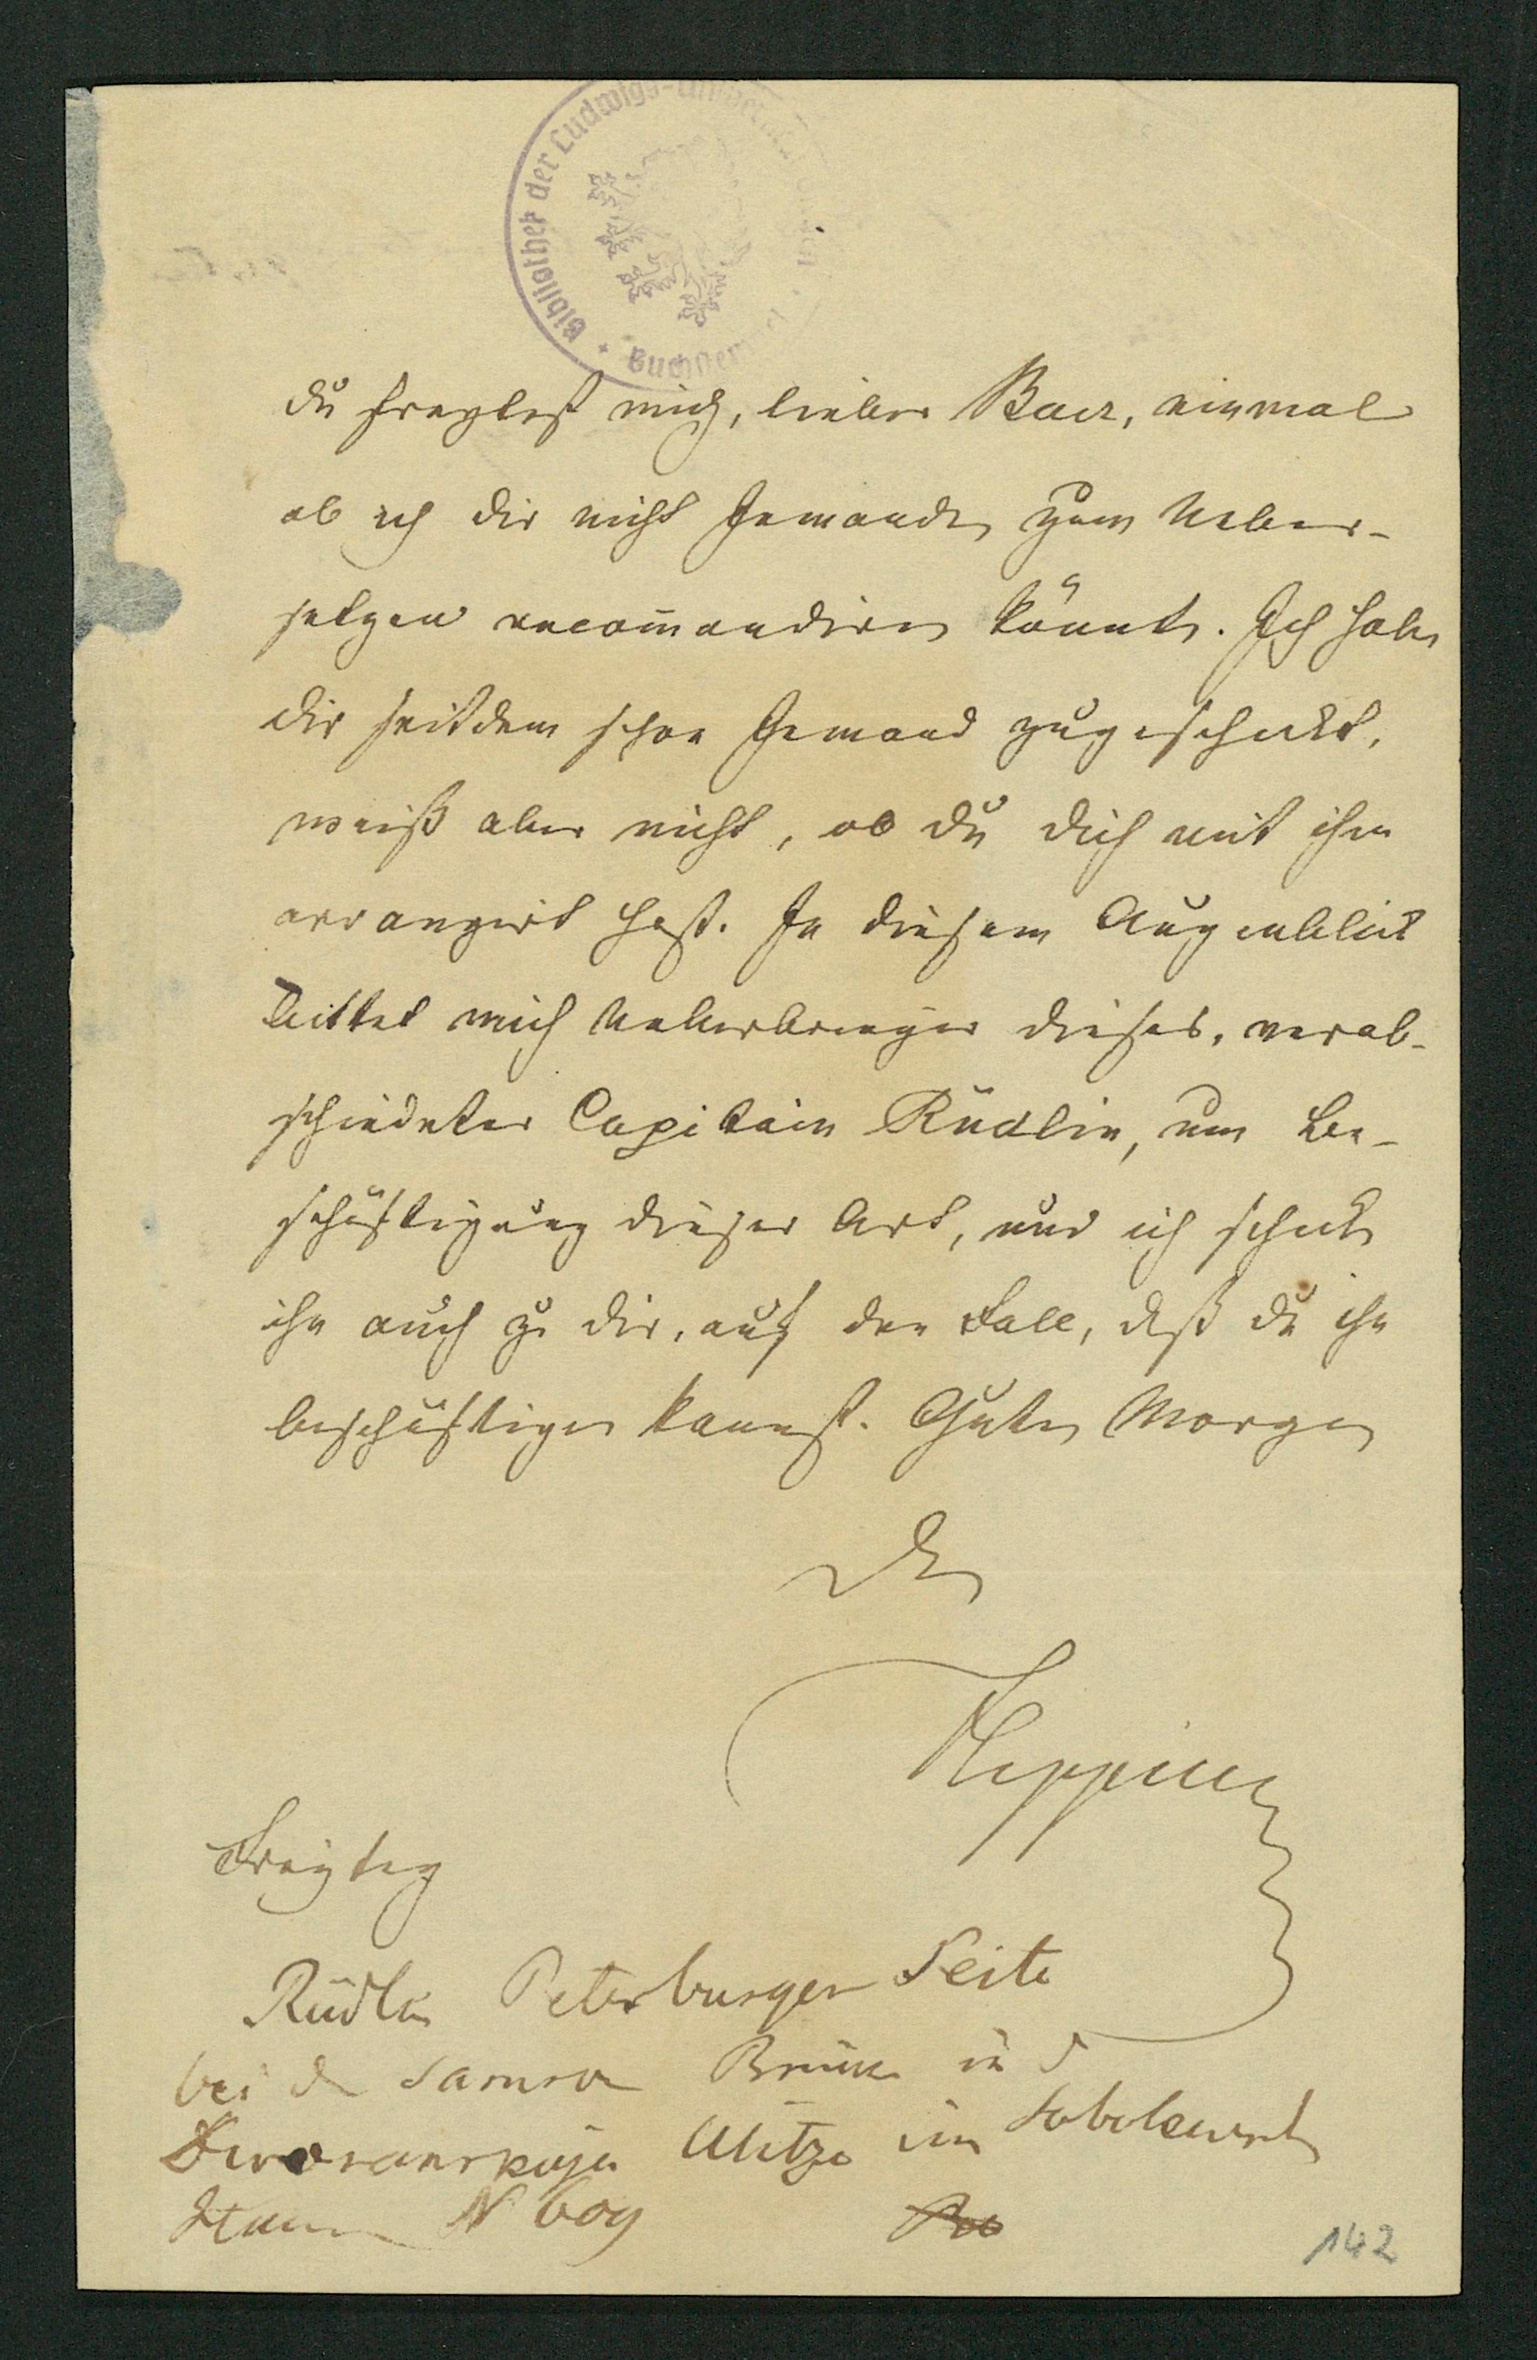 Bibliothek der Ludwigs-
du fragtest mich, lieber Baer, einmal
ob ich dir nicht Jemanden zum Ueber-
setzen recom̄andiren könnte. Ich habe
dir seitdem schon Jemand zugeschickt,
weiß aber nicht, ob du dich mit ihm
arrangirt hast. In diesem Augenblick
bittet mich Ueberbringer dieses, verab-
schiedeter Capitain Rüdlin, um Be-
schäftigung dieser Art, und ich schicke
ihn auch zu dir, auf den Fall, daß du ihn
beschäftigen kannst. Guten Morgen
Dein
Köppen
Freytag
Petersburger Seite
bei d Brücke in d
Ulitza im
Hause N 609
142